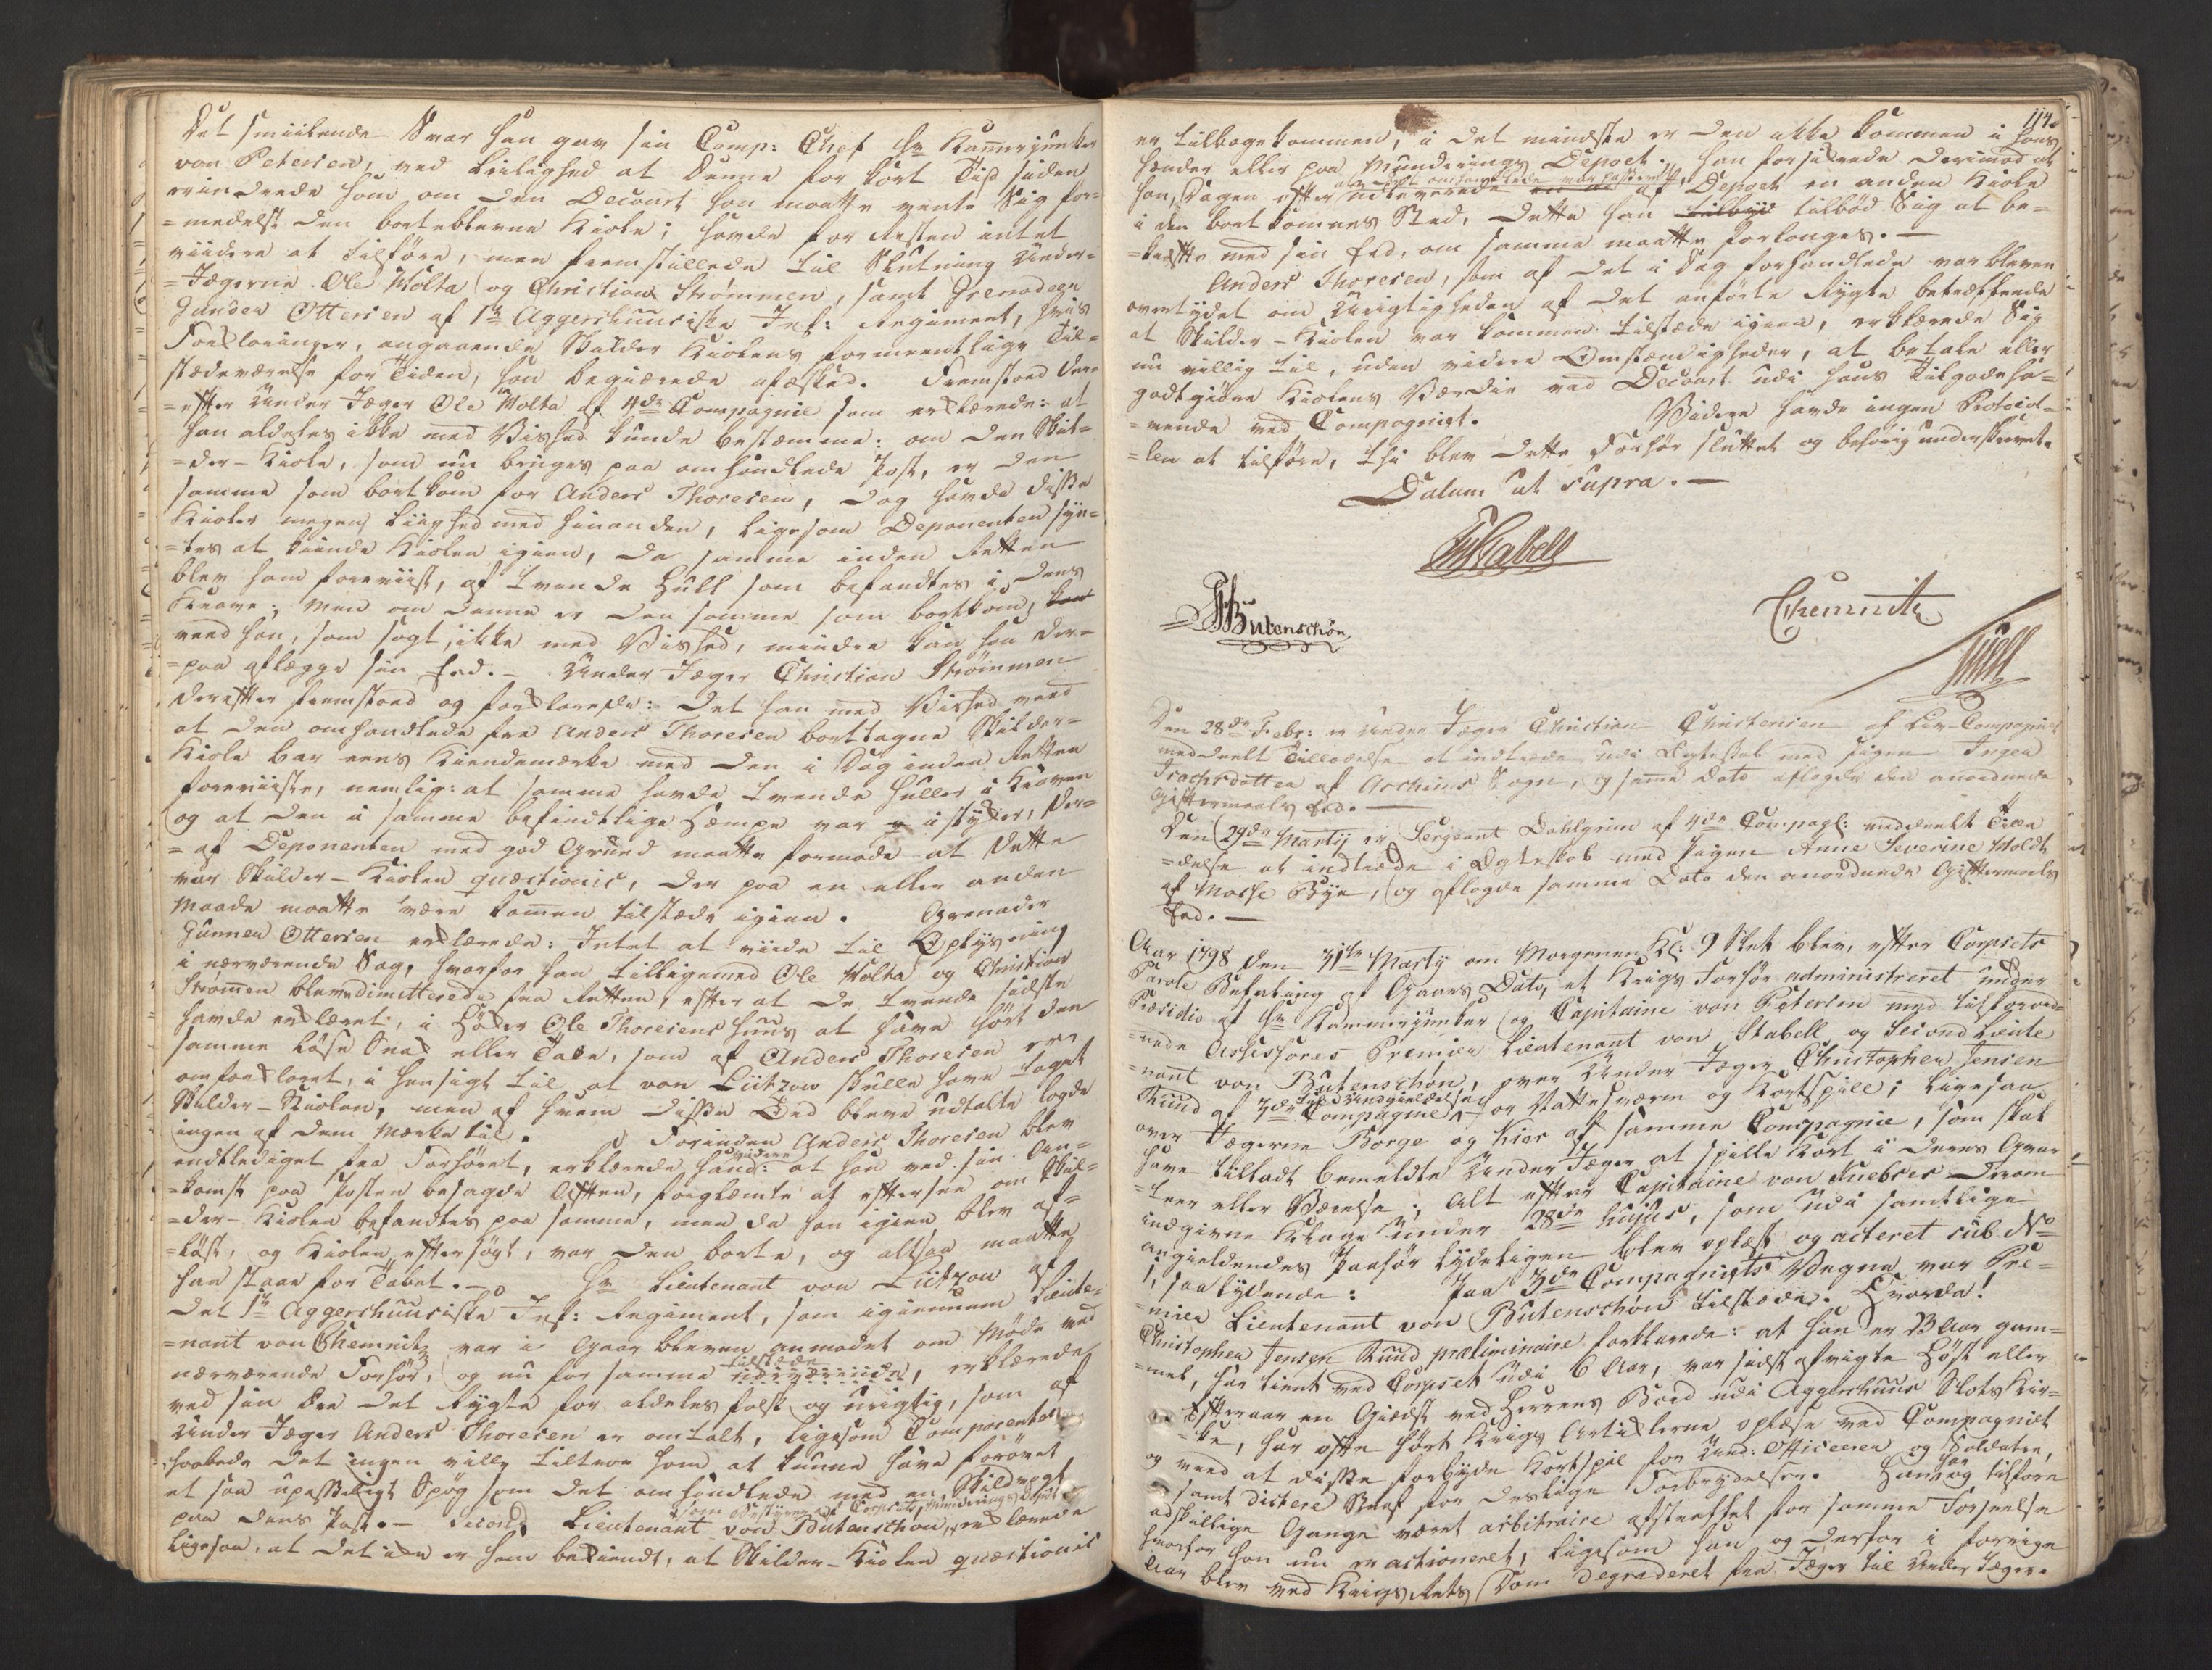 Det smiilende Svar han gav sin Comp: Chef Hr Kammerjunker
von Petersen, ved Leilighed at denne for kort Tid siden
erindrede ham om den Decourt han maatte vente sig for-
=medelst den borteblevne Kiole; havde for Resten intet
viidere at tilføre, men fremstillede til Slutning Under-
=Jægerne Ole Molta og Christian Strømmen, samt Grenadeer
Gunder Ottersen af 1te Aggershuusiske Inf: Regiment, hvis
Forklaringer, angaaende Skilder Kiolens formeentlige Til-
stædeværelse for Tiden, han begiærede afæsket. Fremstoed der-
=efter Under Jæger Ole Molta af 4de Compagnie som erklærede: at
han aldeles ikke med Vished kunde bestemme: om den Skil-
=der-Kiole, som nu bruges paa omhandlede Post, er den
samme som bortkom for Anders Thoresen, dog havde disse
Kioler megen Liighed med hinanden, ligesom Deponenten syn-
=tes at kiende Kiolen igien, da samme inden Retten
blev ham foreviist, af tvende Hull som befandtes i dens
Krave; men om denne er den samme som bortkom,
veed han, som sagt, ikke med Vished, mindre kan han der-
=paa aflægge sin Eed. — Under Jæger Christian Strømmen
derefter fremstoed og forklarede: Det han med Vished veed
at den omhandlede fra Anders Thoresen borttagne Skilder-
Kiole bar eens Kiendemærke med den i Dag inden Retten
foreviiste, nemlig: at samme havde tvende Huller i Kraven
og at den i samme befindtlige Hempe var i stykker, der-
=af Deponenten med god Grund maatte formode at dette
var Skilder-Kiolen quæstionis, der paa en eller anden
Maade maatte være kommen tilstæde igien. Grenader
Gunner Ottersen erklærede: Intet at viide til Oplysning
i nærværende Sag, hvorfor han tilligemed Ole Molta og Christian
Strømmen blev dimitterede fra Retten, efter at de tvende sidste
havde erklæret, i Høker Ole Thoresens Huus at have hørt den
samme løse Snak eller Tale, som af Anders Thoresen er
omforklaret, i Hensigt til at von Lützow skulle have taget
Skilder-Kiolen, men af hvem disse Ord bleve udtalte lagde
ingen af dem Mærke til. Forinden Anders Thoresen blev
entlediget fra Forhøret, erklærede han videre: at han ved sin An-
=komst paa Posten besagde Aften, forglemte at eftersee om Skil-
=der-Kiolen befandtes paa samme, men da han igien blev af-
=løst, og Kiolen eftersøgt, var den borte, og altsaa maatte
han staae for Tabet. — Hr Lieutenant von Lützow af
det 1te Aggershuusiske Inf: Regiment, som igiennem Lieute-
=nant von Chemnitz var i Gaar bleven anmodet om Møde ved
nærværende Forhør, og nu for samme tilstæde nærværende, erklærede
ved sin Ære det Rygte for aldeles falsk og urigtig, som af
Under Jæger Anders Thoresen er omtalt, ligesom Comparenten
haabede det ingen ville tiltroe ham at kunne have forøvet
et saa upasseligt Spøg som det omhandlede med en Skildvagt
paa dens Post. — Second Lieutenant von Butenschøn, som Bestyrer af Corpsets Munderings Depot erklærede
ligesaa, at det ikke er ham bekiendt, at Skilder-Kiolen quæstionis
114.
er tilbagekommen, i det mindste er den ikke kommen i hans
Hænder eller paa Munderings Depoet. han forsikrede derimod at
han, Dagen efter at det omhandlede var passeret udleverede af Depoet en anden Kiole
i den bortkomnes Sted, dette han tilbød tilbød sig at be-
=kræfte med sin Eed, om samme maatte forlanges. —
Anders Thoresen, som af det i Dag forhandlede var bleven
overtydet om Urigtigheden af det anførte Rygte betræffende
at Skilder-Kiolen var kommen tilstæde igien, erklærede sig
nu villig til, uden videre Omstændigheder, at betale eller
godtgiøre Kiolens Værdie ved Decourt udi hans Tilgodeha-
=vende ved Compagniet. Videre havde ingen Protocol-
=len at tilføre, thi blev dette Forhør sluttet og behørig underskrevet.
Datum ut supra. —
Stabell
Butenschøn
Chemnitz
Juell
Den 28de Febr: er Under Jæger Christian Christensen af Liv-Compagniet
meddeelt Tilladelse at indtræde udi Ægteskab med Pigen Inger
Isachsdatter af Aschims Sogn, og samme Dato aflagde den anordnede
Giftermaals Eed. —
Den 29de Marty er Sergeant Dahlgrim af 4de Compagl: meddeelt Tilla-
=delse at indtræde i Ægteskab med Pigen Anne Severine Moldt
af Mosse Bye, og aflagde samme Dato den anordnede Giftermaals
Eed. —
Aar 1798 den 31te Marty om Morgenen Kl: 9 Slet blev, efter Corpsets
Parole Befaling af Gaars Dato, et Krigs Forhør administreret under
Præsidio af Hr Kammerjunker og Capitaine von Petersen med tilforord-
=nede Assessores Premier Lieutenant von Stabell og Second Lieute
=nant von Butenschøn, over Under Jæger Christopher Jensen
Ruud af 3de Compagnie for Nattesværm og Kortspill; ligesaa
over Jægerne Borge og Kier af samme Compagnie, som skal
have tilladt bemeldte Under Jæger at spille Kort i deres Qvar-
=teer eller Værelse; alt efter Capitaine von Huebses derom
indgivne Klage under 28de hujus, som udi samtlige
angieldendes Paahør lydeligen blev oplæst og acteret sub No
1, saalydende: Paa 3de Compagniets Vegne var Pre-
=mier Lieutenant von Butenschøn tilstæde. Qvorda!
Christopher Jensen Ruud præliminaire forklarede: at han er 23 Aar gam-
=mel, har tient ved Corpset udi 6 Aar, var sidst afvigte Høst eller
Efteraar en Giæst ved Herrens Bord udi Aggershuus Slots Kir-
=ke, har ofte hørt Krigs Artiklerne oplæse ved Compagniet
og veed at disse forbyde Kortspil for Und: Officerer og Soldater,
samt dictere Straf for deslige Forbrydelser. Han har og tilforn
adskillige Gange været arbitraire afstraffet for samme Forseelse
hvorfor han nu er actioneret, ligesom han og derfor i forrige
Aar blev ved Krigs Rets Dom degraderet fra Jæger til Under Jæger.